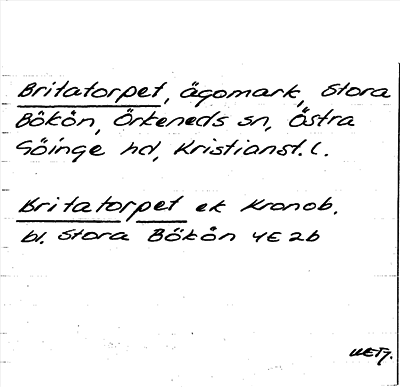 Britatorpet, ägomark, Stora
Bökön, Örkeneds sn, Östra
Göinge hd, Kristianst. l.
Britatorpet ek Kronob.
bl. Stora Bökön 4E 2b